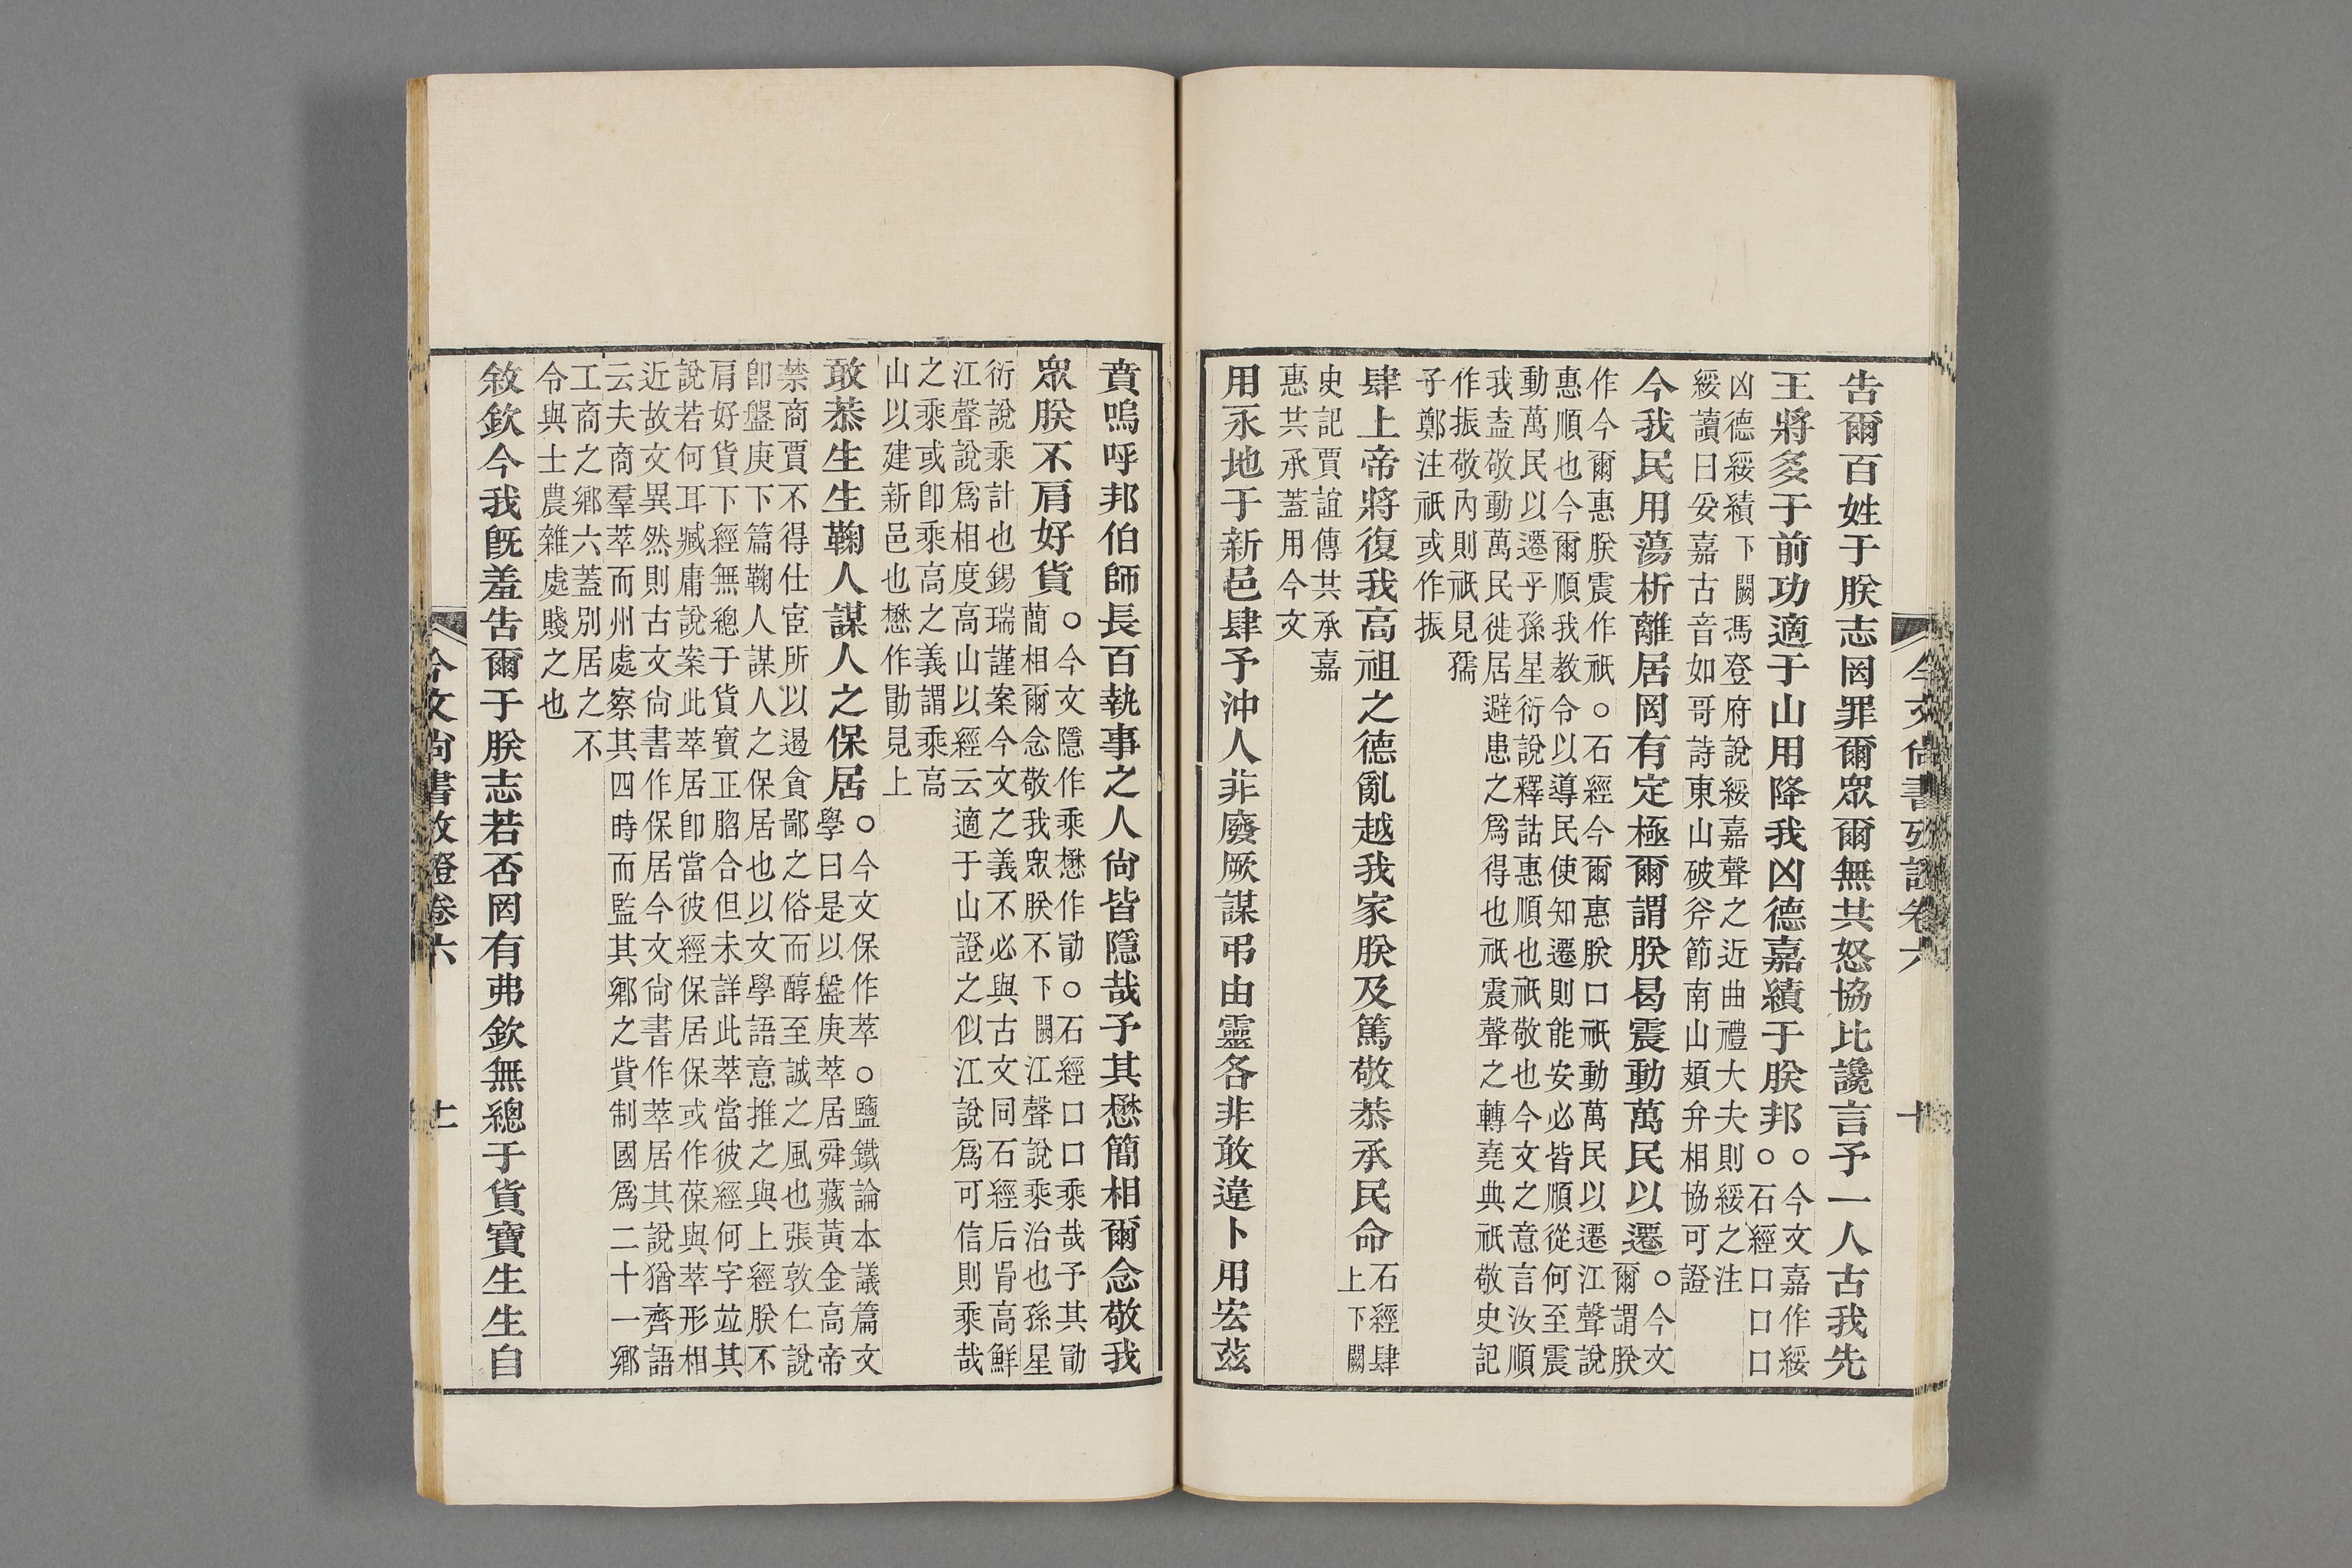 今文尚書攷證卷六
十
告爾百姓于朕志罔罪爾眾爾無共怒協比讒言予一人古我先
王將多于前功適于山用降我凶德嘉績于朕邦○今文嘉作綏
○石經口口口
凶德綏績下闕馮登府說綏嘉聲之近曲禮大夫則綏之注
綏讀曰妥嘉古音如哥詩東山破斧節南山頍弁相協可證
今我民用蕩析離居罔有定極爾謂朕曷震動萬民以遷○今文
爾謂朕
作今爾惠朕震作祇○石經今爾惠朕口祇動萬民以遷江聲說
惠順也今爾順我教令以導民使知遷則能安必皆順從何至震
動萬民以遷乎孫星衍說釋詁惠順也祇敬也今文之意言汝順
我盍敬動萬民徙居避患之爲得也祇震聲之轉堯典祇敬史記
作振敬內則祇見孺
子鄭注祇或作振
肆上帝將復我高祖之德亂越我家朕及篤敬恭承民命石經肆
上下闕
史記賈誼傳共承嘉
惠共承蓋用今文
用永地于新邑肆予沖人非廢厥謀弔由靈各非敢違卜用宏茲
賁嗚呼邦伯師長百執事之人尙皆隱哉予其懋簡相爾念敬我
眾朕不肩好貨○今文隱作乘懋作勖○石經口口乘哉予其勖
簡相爾念敬我眾朕不下闕江聲說乘治也孫星
衍說乘計也錫瑞謹案今文之義不必與古文同石經后肙高鮮
江聲說爲相度高山以經云適于山證之似江說爲可信則乘哉
之乘或卽乘高之義謂乘高
山以建新邑也懋作勖見上
敢恭生生鞠人謀人之保居○今文保作萃○鹽鐵論本議篇文
學曰是以盤庚萃居舜藏黃金高帝
禁商賈不得仕宦所以遏貪鄙之俗而醇至誠之風也張敦仁說
卽盤庚下篇鞠人謀人之保居也以文學語意推之與上經朕不
肩好貨下經無總于貨寶正脗合但未詳此萃當彼經何字竝其
說若何耳臧庸說案此萃居卽當彼經保居保或作葆與萃形相
近故文異然則古文尙書作保居今文尙書作萃居其說猶齊語
云夫商羣萃而州處察其四時而監其鄉之貲制國爲二十一鄉
工商之鄉六蓋別居之不
令與士農雜處賤之也
敘欽今我旣羞告爾于朕志若否罔有弗欽無總于貨寶生生自
今文尙書攷證卷六
十一